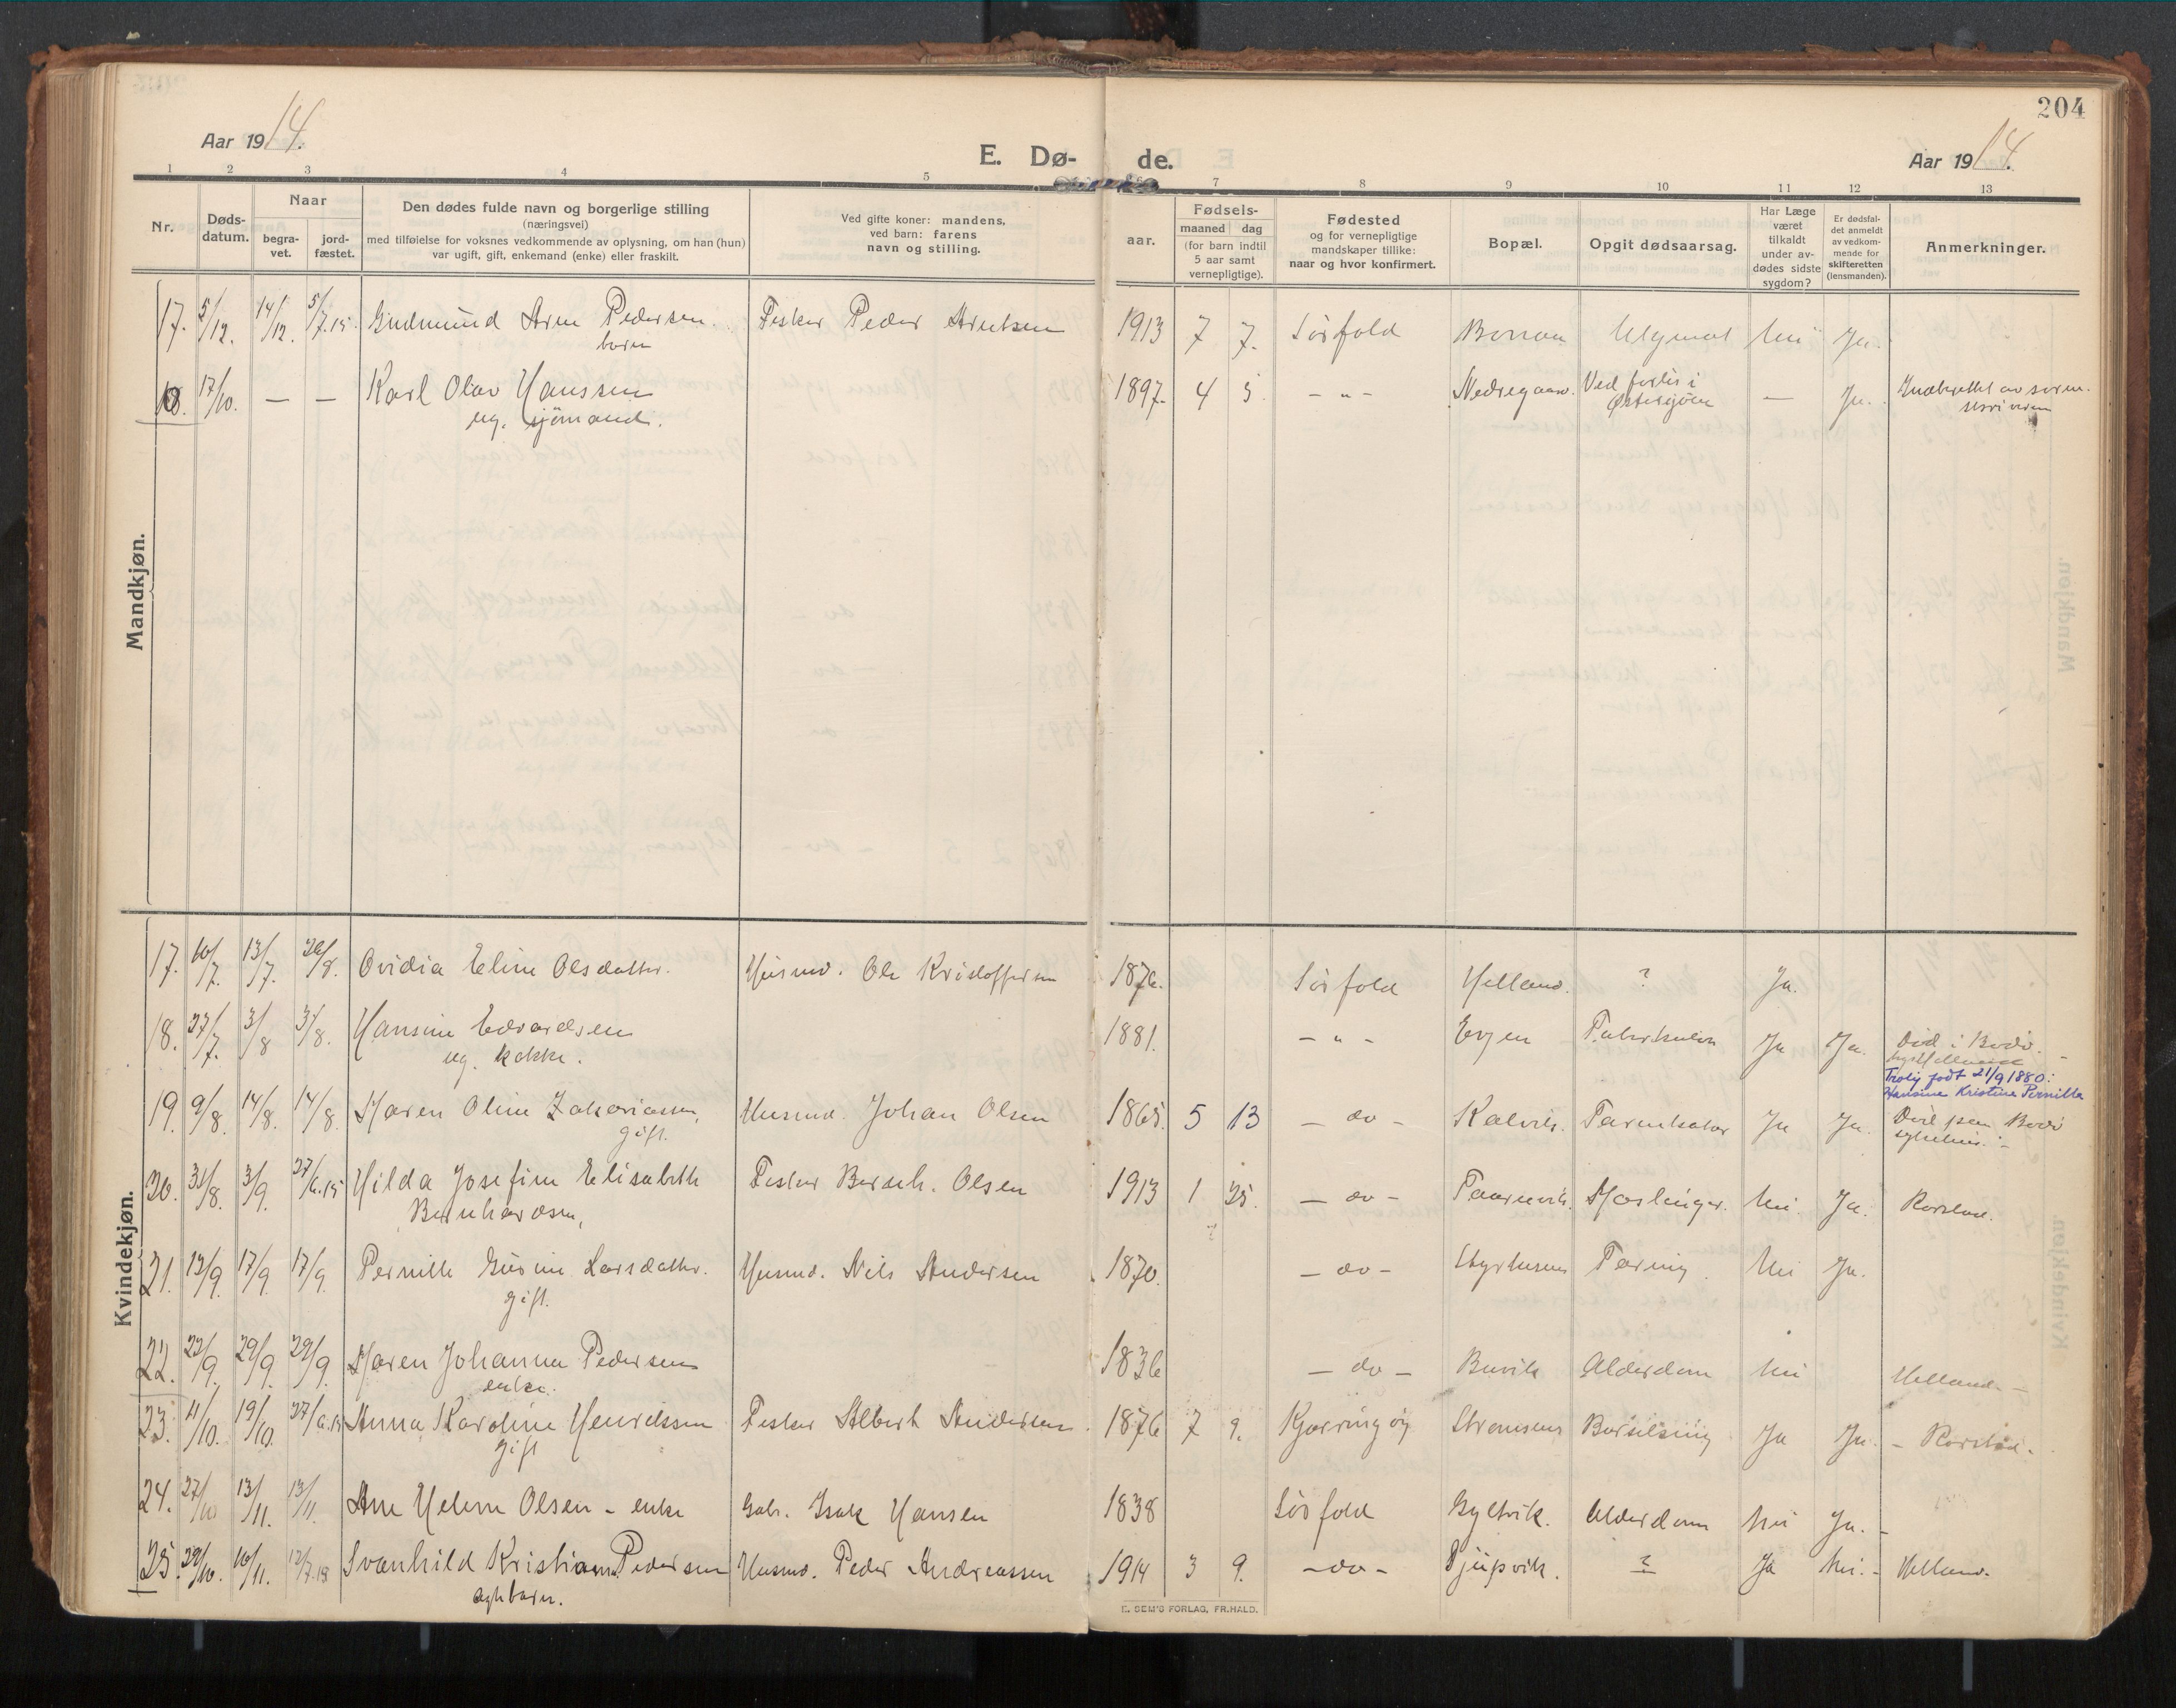 204
Aar 1914. E. Dø- de. Aar 1914.
1 2 3 4 5 6 7 8 9 10 11 12 13
Nr.
Døds-
datum.
Naar
begra-
vet.
jord-
fæstet.
Den dødes fulde navn og borgerlige stilling
(næringsvei)
med tilføielse for voksnes vedkommende av oplysning, om han (hun)
var ugift, gift, enkemand (enke) eller fraskilt.
Ved gifte koner: mandens,
ved barn: farens
navn og stilling.
aar.
Fødsels-
maaned dag
(for barn indtil
5 aar samt
vernepligtige).
Fødested
og for vernepligtige
mandskaper tillike:
naar og hvor konfirmert.
Bopæl.
Opgit dødsaarsag.
Har Læge
været
tilkaldt
under av-
dødes sidste
sygdom?
Er dødsfal-
det anmeldt
av vedkom-
mende for
skifteretten
(lensmanden).
Anmerkninger.
Mandkjøn.
17. 5/12. 14/12. 5/7.15. Gudmund Arne Pedersen. Fisker Peder Arntsen 1913 7 7. Sørfold Ja.
barn
18. 17/10. — — Karl Olav Hanssen 1897. 4 5. - " - Nedregaard. Ved forlis i — Ja.
ug. sjømand. Østersjøen
Kvindekjøn.
17. 10/7. 13/7. 26/8. Ovidia Eline Olsdatter. Husmd. Ole Kristoffersen 1876. Sørfold Helland. ? Ja.
18. 27/7. 3/8 3/8. Hansine Edvardsen 1881. - " - Evjen Tuberkulose Ja Ja. Død i Bodø.
ug. kokke.
Trolig født 21/9 1880:
Hansine Kristine Pernille
19. 9/8. 14/8. 14/8. Maren Oline Zakariassen, Husmd. Johan Olsen 1865. 5 13 - do - Kalvik. Ja Ja. Død paa Bodø
gift. sykehus.-
20. 31/8. 3/9. 27/6.15 Hilda Josefine Elisabeth Fisker Bernh. Olsen 1913 1 25. - do - Mæslinger. Nei. Ja. Rørstad.
Bernhardsen,
21. 13/9. 17/9. 17/9. Pernille Gusine Larsdatter. Husmd. Nils Andersen 1870. - do - Styrkesnes Tæring Nei Ja.
gift.
22. 22/9. 29/9. 29/9. Maren Johanna Pedersen 1836 - do - Buvik Alderdom Nei Helland.-
enke.
23. 11/10. 19/10. 27/6.15 Anna Karoline Henrikssen Fisker Albert Andersen. 1876 7 9. Kjærringøy Strømsnes Barselseng Ja Ja. - Rørstad.
gift
24. 27/10 13/11. 13/11. Ane Helene Olsen - enke Gbr. Isak Hansen 1838 Sørfold Gyltvik. Alderdom Nei Ja. -
25. 29/10. 16/11. 12/7.15 Svanhild Kristiane Pedersen Husmd. Peder Andreassen 1914 3 9. - do - Djupvik. ? Ja Nei.- Helland.
ægtebarn.
E. SEM'S FORLAG, FR.HALD.